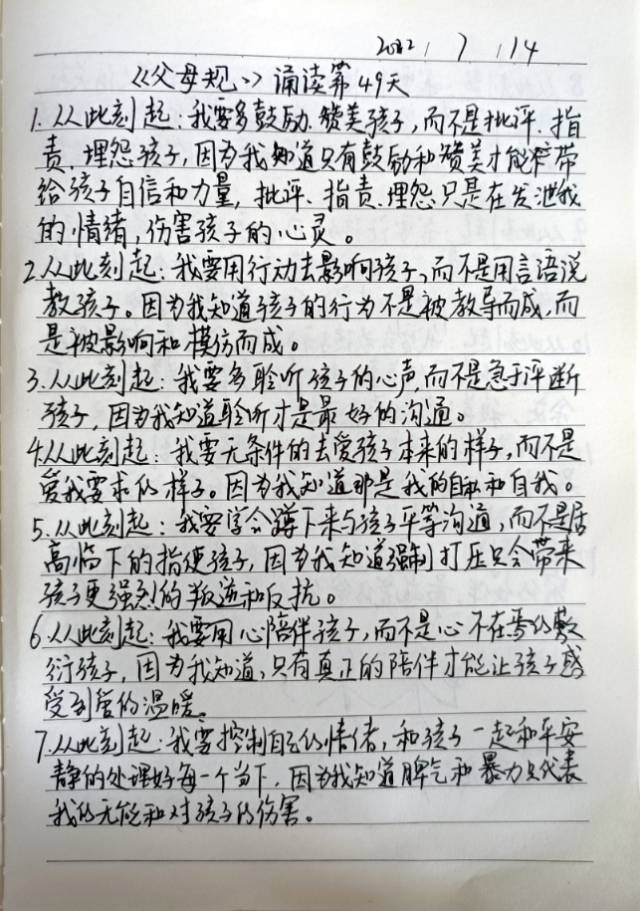 2022.7.14
《父母规》诵读第49天
1.从此刻起:我要多鼓励、赞美孩子,而不是批评、指
责、埋怨孩子,因为我知道只有鼓励和赞美才能带
给孩子自信和力量,批评、指责、埋怨只是在发泄我
的情绪,伤害孩子的心灵。
2.从此刻起:我要用行动去影响孩子,而不是用言语说
教孩子。因为我知道孩子的行为不是被教导而成,而
是被影响和模仿而成。
3.从此刻起:我要多聆听孩子的心声,而不是急于评断
孩子,因为我知道聆听才是最好的沟通。
4.从此刻起:我要无条件的去爱孩子本来的样子,而不是
爱我要求的样子。因为我知道那是我的自私和自我。
5.从此刻起:我要学会蹲下来与孩子平等沟通,而不是居
高临下的指使孩子,因为我知道强制打压只会带来
孩子更强烈的叛逆和反抗。
6.从此刻起:我要用心陪伴孩子,而不是心不在焉的敷
衍孩子,因为我知道,只有真正的陪伴才能让孩子感
受到爱的温暖。
7.从此刻起:我要控制自己的情绪,和孩子一起和平安
静的处理好每一个当下,因为我知道脾气和暴力只代表
我的无能和对孩子的伤害。